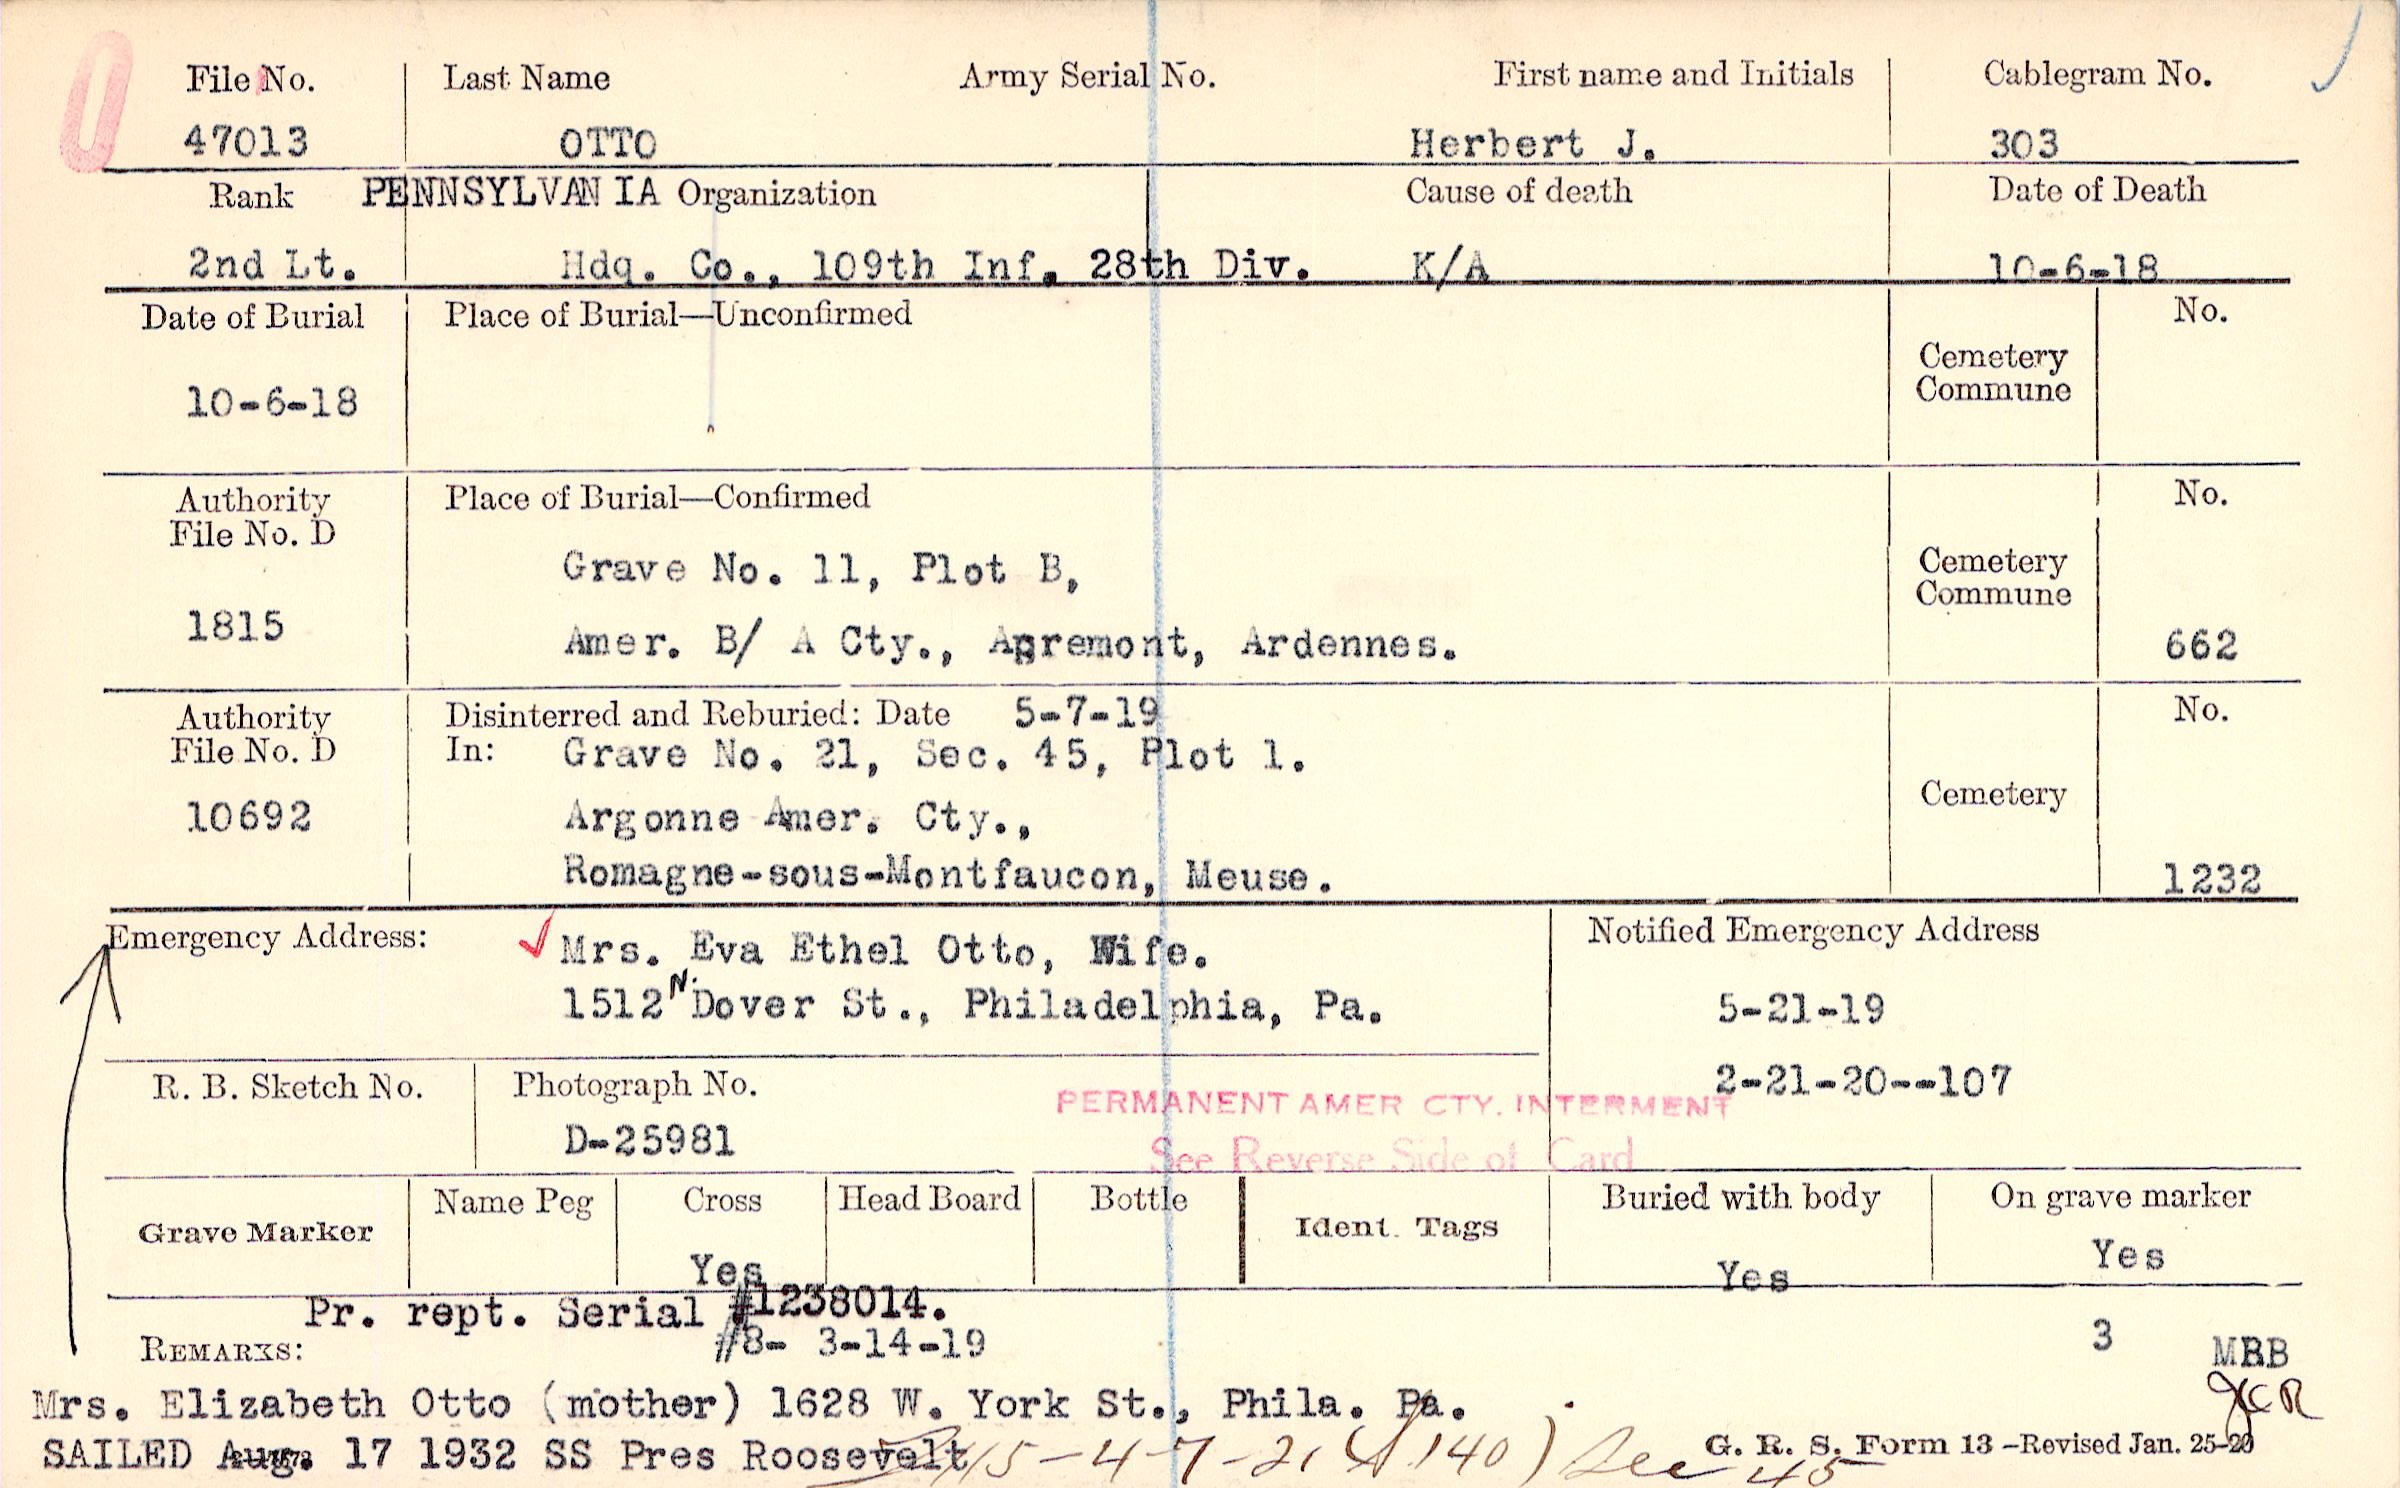 File No. Last Name Army Serial No. First name and Initials Cablegram No.
47013 OTTO Herbert J. 303
Rank PENNSYLVANIA Organization Cause of death Date of Death
2nd Lt. Hdq. Co., 109th Inf. 28th Div. K/A 10-6-18
Date of Burial Place of Burial—Unconfirmed No.
Cemetery
Commune
10-6-18
Authority Place of Burial—Confirmed No.
File No. D
Grave No. 11, Plot B, Cemetery
Commune
1815
Amer. B/ A Cty., Apremont, Ardennes. 662
Authority Disinterred and Reburied: Date 5-7-19 No.
File No. D In: Grave No. 21, Sec. 45, Plot 1.
Cemetery
10692 Argonne Amer. Cty.,
Romagne-sous-Montfaucon, Meuse. 1232
Emergency Address: Mrs. Eva Ethel Otto, Wife. Notified Emergency Address
1512 N. Dover St., Philadelphia, Pa. 5-21-19
R. B. Sketch No. Photograph No. 2-21-20--107
PERMANENT AMER CTY. INTERMENT
D-25981
See Reverse Side of Card
Grave Marker Name Peg Cross Head Board Bottle Ident. Tags Buried with body On grave marker
Yes Yes Yes
Pr. rept. Serial #1238014.
#8- 3-14-19 3
REMARKS: MBB
JCR
Mrs. Elizabeth Otto (mother) 1628 W. York St., Phila. Pa.
SAILED Aug. 17 1932 SS Pres Roosevelt 15-4-7-21 140) Sec 45
G. R. S. Form 13 –Revised Jan. 25-20